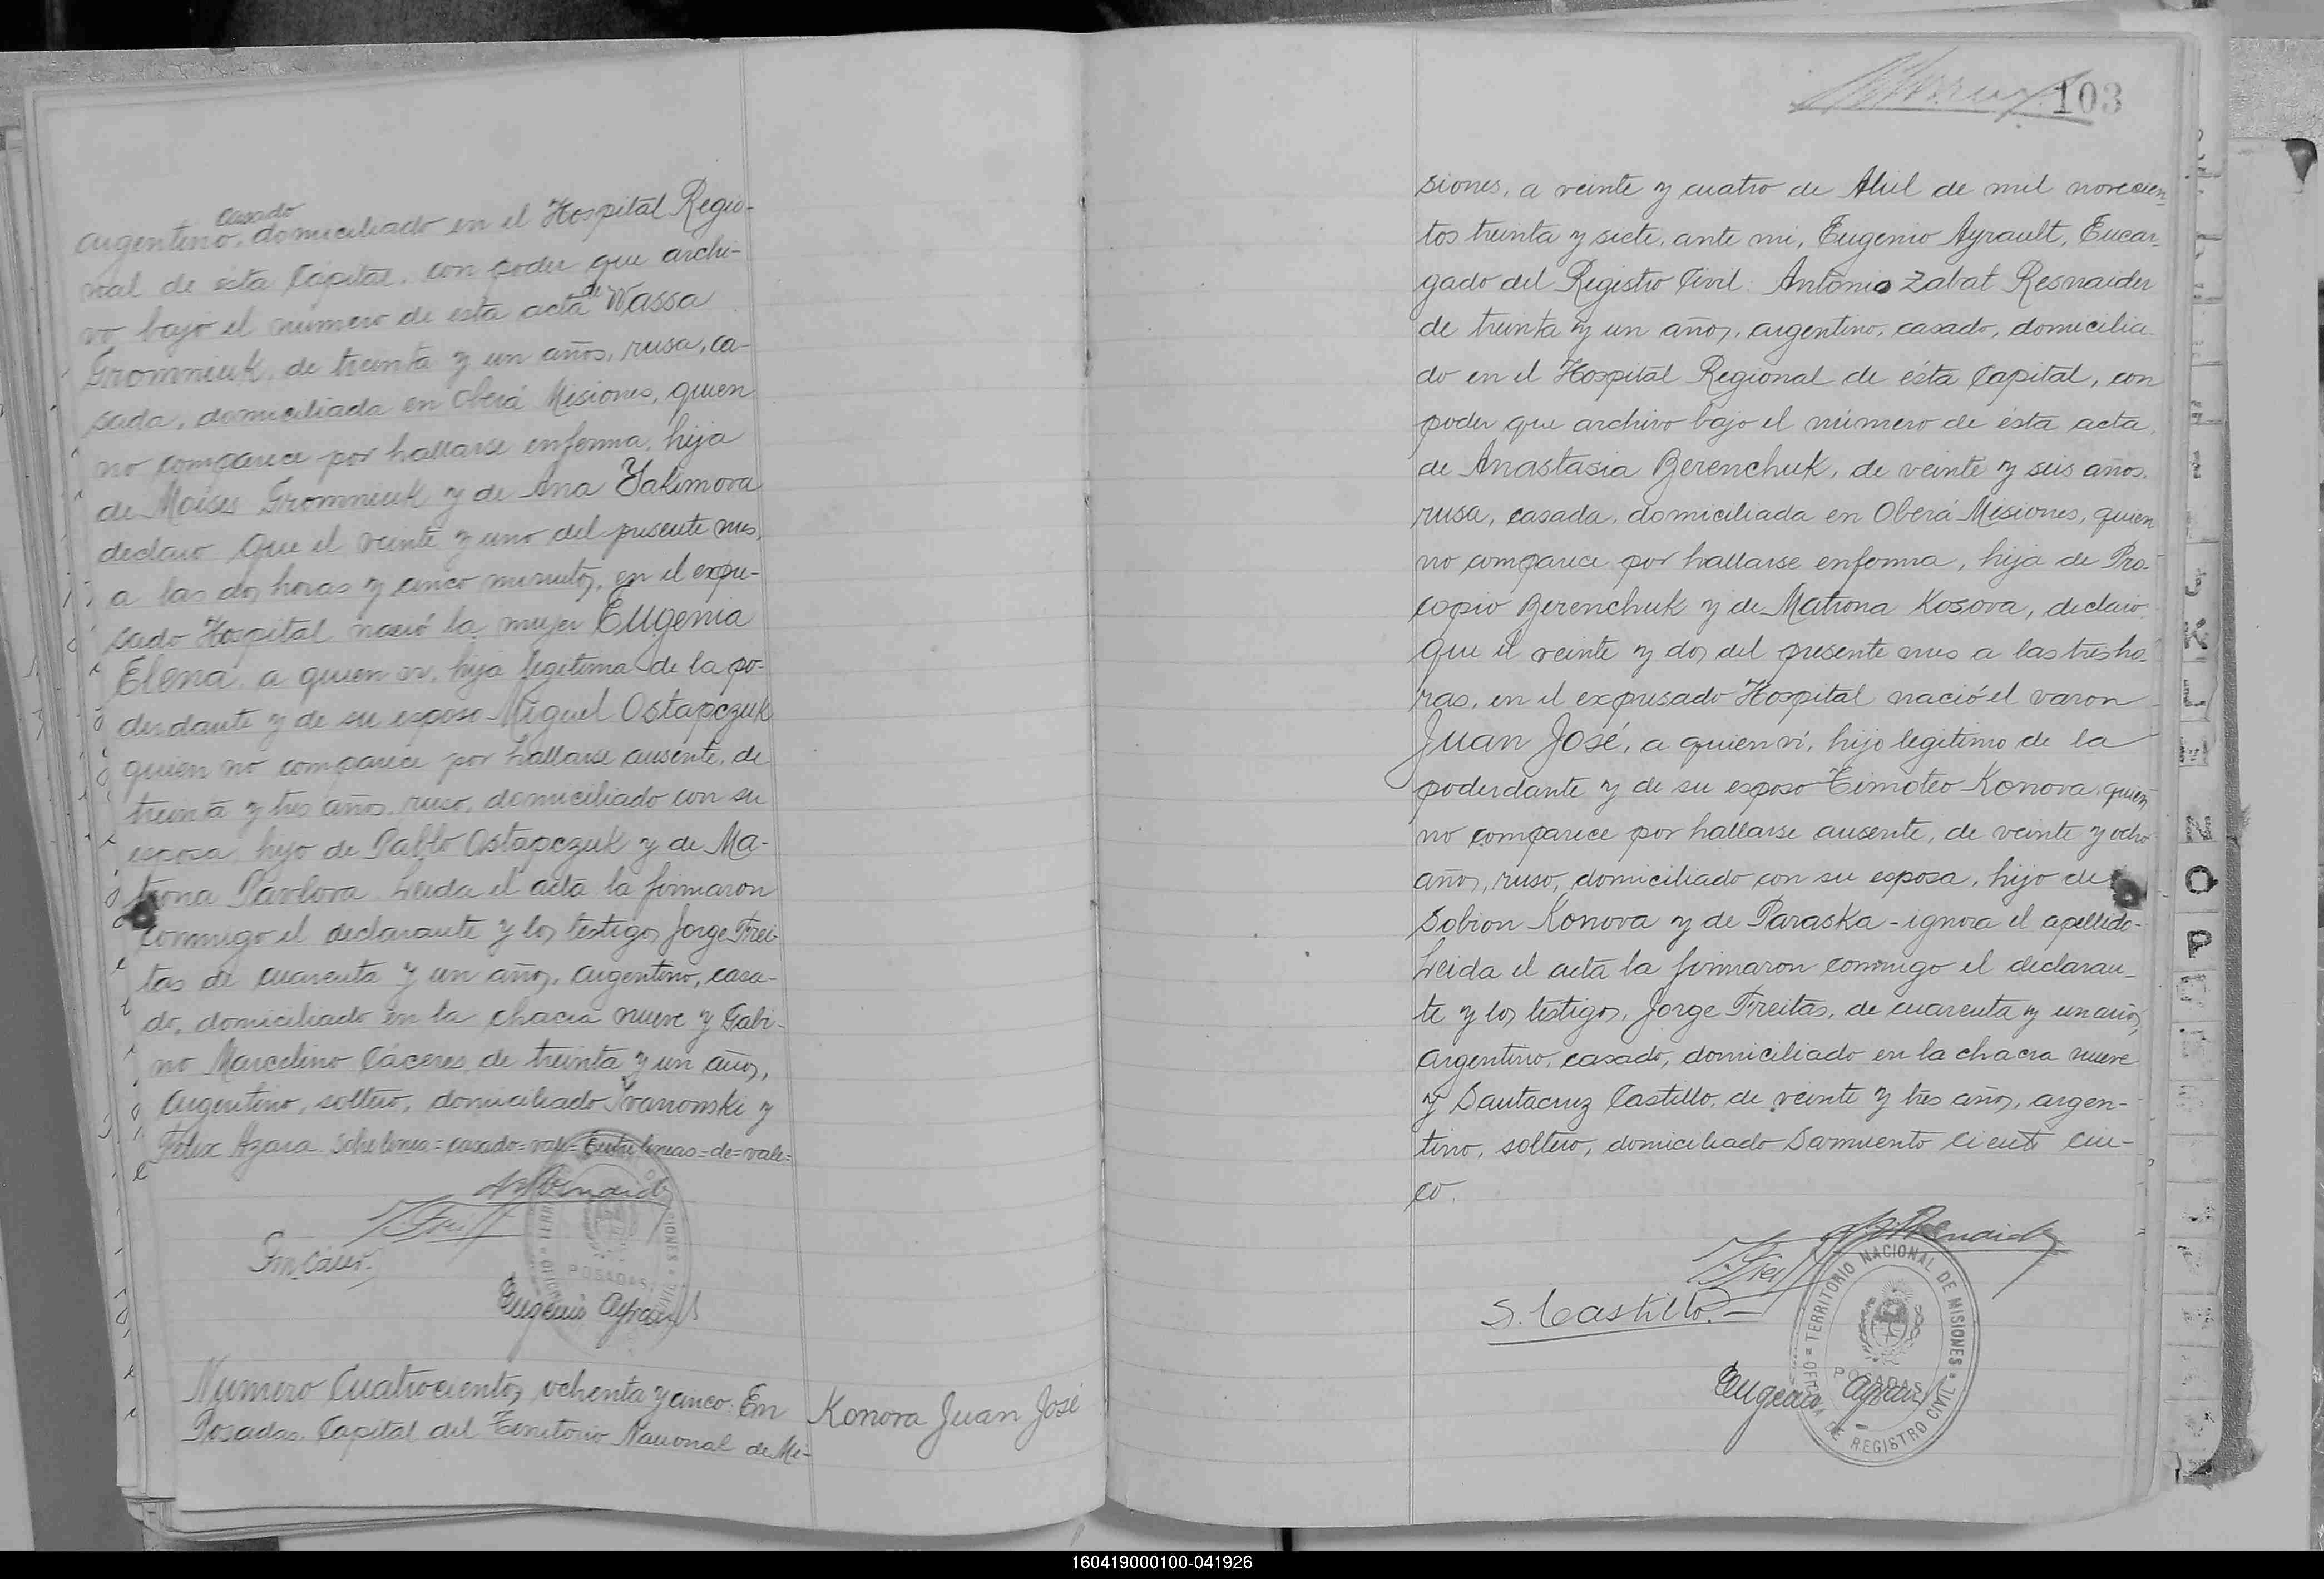 casado
argentino, domiciliado en el Hospital Regio-
nal de ésta Capital, con poder que archi-
vo bajo el número de esta acta de Wassa
Gromniuk, de treinta y un años, rusa, ca-
sada, domiciliada en Oberá Misiones, quien
no comparece por hallarse enferma, hija
de Moisés Gromniuk y de Ana Yakimova
declaro que el veinte y uno del presente mes,
a las dos horas y cinco minutos, en el expre-
sado Hospital nació la mujer Eugenia
Elena, a quien vi, hija legitima de la po-
derdante y de su esposo Miguel Ostapczuk
quien no comparece por hallarse ausente, de
treinta y tres años, ruso, domiciliado con su
esposa, hijo de Pablo Ostapczuk y de Ma-
trona Pavlova. Leida el acta la firmaron
conmigo el declarante y los testigos Jorge Frei-
tas de cuarenta y un años, argentino, casa-
do, domiciliado en la chacra nueve y Gabi-
no Marcelino Cáceres, de treinta y un años,
argentino, soltero, domiciliado Ivanowski y
Felix Azara. Sobre linea=casado=vale=Entre lineas=de=vale=
POSADAS
Eugenio Ayrault
Numero Cuatrocientos ochenta y cinco: En
Posadas, Capital del Territorio Nacional de Mi-
Konova Juan José
103
siones, a veinte y cuatro de Abril de mil novecien-
tos treinta y siete, ante mi, Eugenio Ayrault, Encar-
gado del Registro Civil: Antonio Zabat Resnaider
de treinta y un años, argentino, casado, domicilia-
do en el Hospital Regional de ésta Capital, con
poder que archivo bajo el número de ésta acta,
de Anastasia Berenchuk, de veinte y seis años,
rusa, casada, domiciliada en Oberá Misiones, quien
no comparece por hallarse enferma, hija de Pro-
copio Berenchuk y de Matrona Kosova, declaro
que el veinte y dos del presente mes a las tres ho-
ras, en el expresado Hospital nació el varon
Juan José, a quien vi, hijo legitimo de la
poderdante y de su esposo Timoteo Konova, quien
no comparece por hallarse ausente, de veinte y ocho
años, ruso, domiciliado con su esposa, hijo de
Sobion Konova y de Paraska -ignora el apellido-
Leida el acta la firmaron conmigo el declaran-
te y los testigos, Jorge Freitas, de cuarenta y un años
argentino, casado, domiciliado en la chacra nueve
y Santacruz Castillo, de veinte y trés años, argen-
tino, soltero, domiciliado Sarmiento ciento cin-
co.
S. Castillo.-
OFICINA DE REGISTRO CIVIL = TERRITORIO NACIONAL DE MISIONES =
POSADAS
Eugenio Ayrault
K
L
N
O
P
160419000100-041926